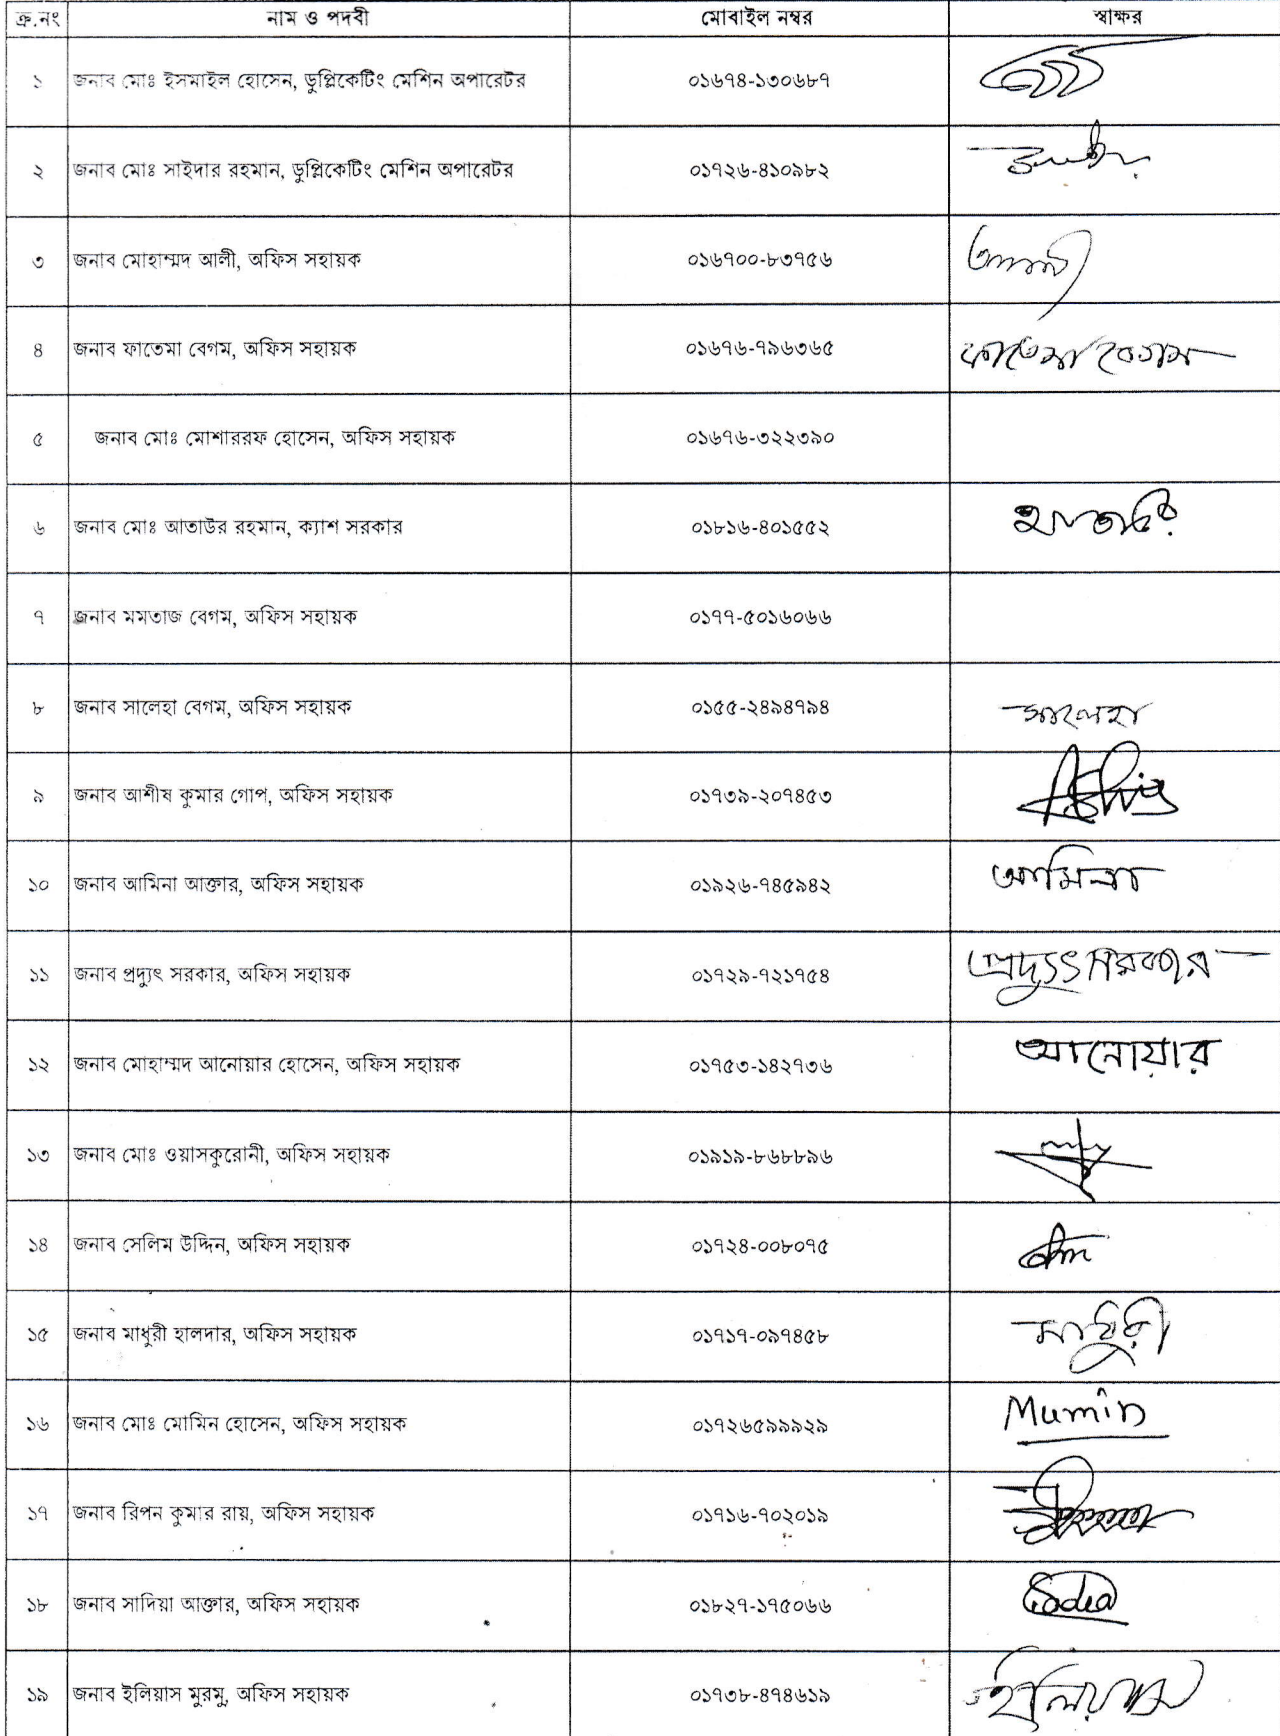 ক্র.নং নাম ও পদবী মোবাইল নম্বর স্বাক্ষর
১ জনাব মোঃ ইসমাইল হোসেন, ডুপ্লিকেটিং মেশিন অপারেটর ০১৬৭৪-১৩০৬৮৭
২ জনাব মোঃ সাইদার রহমান, ডুপ্লিকেটিং মেশিন অপারেটর ০১৭২৬-৪১০৯৮২
৩ জনাব মোহাম্মদ আলী, অফিস সহায়ক ০১৬৭০০-৮৩৭৫৬
৪ জনাব ফাতেমা বেগম, অফিস সহায়ক ০১৬৭৬-৭৯৬৩৬৫ ফাতেমা বেগম
৫ জনাব মোঃ মোশাররফ হোসেন, অফিস সহায়ক ০১৬৭৬-৩২২৩৯০
৬ জনাব মোঃ আতাউর রহমান, ক্যাশ সরকার ০১৮১৬-৪০১৫৫২
৭ জনাব মমতাজ বেগম, অফিস সহায়ক ০১৭৭-৫০১৬০৬৬
৮ জনাব সালেহা বেগম, অফিস সহায়ক ০১৫৫-২৪৯৪৭৯৪ সালেহা
৯ জনাব আশীষ কুমার গোপ, অফিস সহায়ক ০১৭৩৯-২০৭৪৫৩
১০ জনাব আমিনা আক্তার, অফিস সহায়ক ০১৯২৬-৭৪৫৯৪২ আমিনা
১১ জনাব প্রদ্যুৎ সরকার, অফিস সহায়ক ০১৭২৯-৭২১৭৫৪ প্রদ্যুৎ সরকার
১২ জনাব মোহাম্মদ আনোয়ার হোসেন, অফিস সহায়ক ০১৭৫৩-১৪২৭৩৬ আনোয়ার
১৩ জনাব মোঃ ওয়াসকুরোনী, অফিস সহায়ক ০১৯১৯-৮৬৮৮৯৬
১৪ জনাব সেলিম উদ্দিন, অফিস সহায়ক ০১৭২৪-০০৮০৭৫
১৫ জনাব মাধুরী হালদার, অফিস সহায়ক ০১৭১৭-০৯৭৪৫৮ মাধুরী
১৬ জনাব মোঃ মোমিন হোসেন, অফিস সহায়ক ০১৭২৬৫৯৯৯২৯ Mumin
১৭ জনাব রিপন কুমার রায়, অফিস সহায়ক ০১৭১৬-৭০২০১৯
১৮ জনাব সাদিয়া আক্তার, অফিস সহায়ক ০১৮২৭-১৭৫০৬৬ Sadia
১৯ জনাব ইলিয়াস মুরমু, অফিস সহায়ক ০১৭৩৮-৪৭৪৬১৯ ইলিয়াস